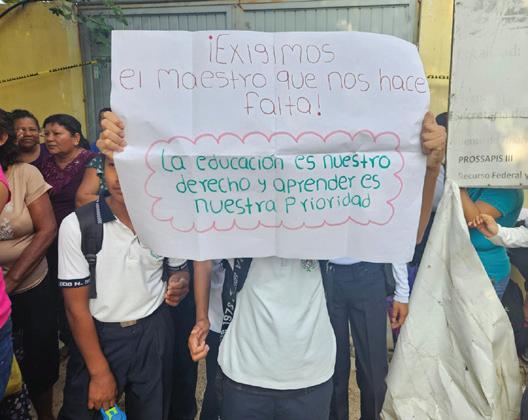 ¡EXIGIMOS
EL MAESTRO QUE NOS HACE
FALTA!
LA EDUCACIÓN ES NUESTRO
DERECHO Y APRENDER ES
NUESTRA PRIORIDAD
PROSSAPIS III
Recurso Federal y